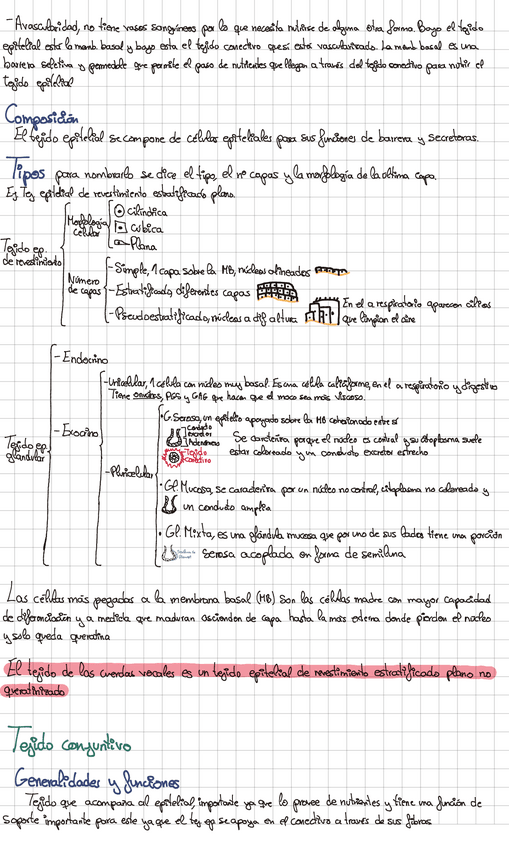 - Avascularidad, no tiene vasos sanguíneos por lo que necesita nutrirse de alguna otra forma. Bajo el tejido
epitelial esta la memb basal y bajo esta el tejido conectivo que sí esta vascularizado. La memb basal es una
barrera selectiva y permeable que permite el paso de nutrientes que llegan a través del tejido conectivo para nutrir el
tejido epitelial
Composición
El tejido epitelial se compone de células epiteliales para sus funciones de barrera y secretoras.
Tipos para nombrarlo se dice el tipo, el nº capas y la morfología de la última capa.
Ej Tej epitelial de revestimiento estratificado plano.
Tejido ep. de revestimiento
Morfología celular
Cilíndrica
Cúbica
Plana
Número de capas
- Simple, 1 capa sobre la MB, núcleos alineados
- Estratificado, diferentes capas
- Pseudoestratificado, núcleos a dif altura
En el a respiratorio aparecen cilios
que limpian el aire
Tejido ep. glandular
- Endocrino
- Exocrino
- Unicelular, 1 célula con núcleo muy basal. Es una célula caliciforme, en el a respiratorio y digestivo
Tiene PGs y GAG que hacen que el moco sea más viscoso.
- Pluricelular
· G. Serosa, un epitelio apoyado sobre la MB cohesionado entre sí
Conducto excretor
Adenómero
Tejido conectivo
Se caracteriza porque el núcleo es central y su citoplasma suele
estar coloreado y un conducto excretor estrecho
· Gl. Mucosa, se caracteriza por un núcleo no central, citoplasma no coloreado y
un conducto amplio
· Gl. Mixta, es una glándula mucosa que por uno de sus lados tiene una porción
serosa acoplada en forma de semiluna
Las células más pegadas a la membrana basal (MB) son las células madre con mayor capacidad
de diferenciación y a medida que maduran ascienden de capa hasta la más externa donde pierden el núcleo
y solo queda queratina
El tejido de las cuerdas vocales es un tejido epitelial de revestimiento estratificado plano no
queratinizado
Tejido conjuntivo
Generalidades y funciones
Tejido que acompaña al epitelial, importante ya que lo provee de nutrientes y tiene una función de
soporte importante para este ya que el tej ep se apoya en el conectivo a través de sus fibras